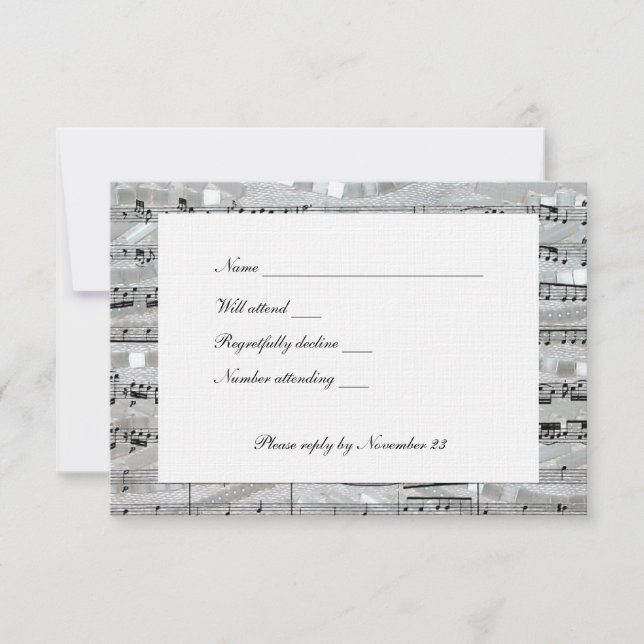 Name ______________________
Will attend ___
Regretfully decline ___
Number attending ___
Please reply by November 23